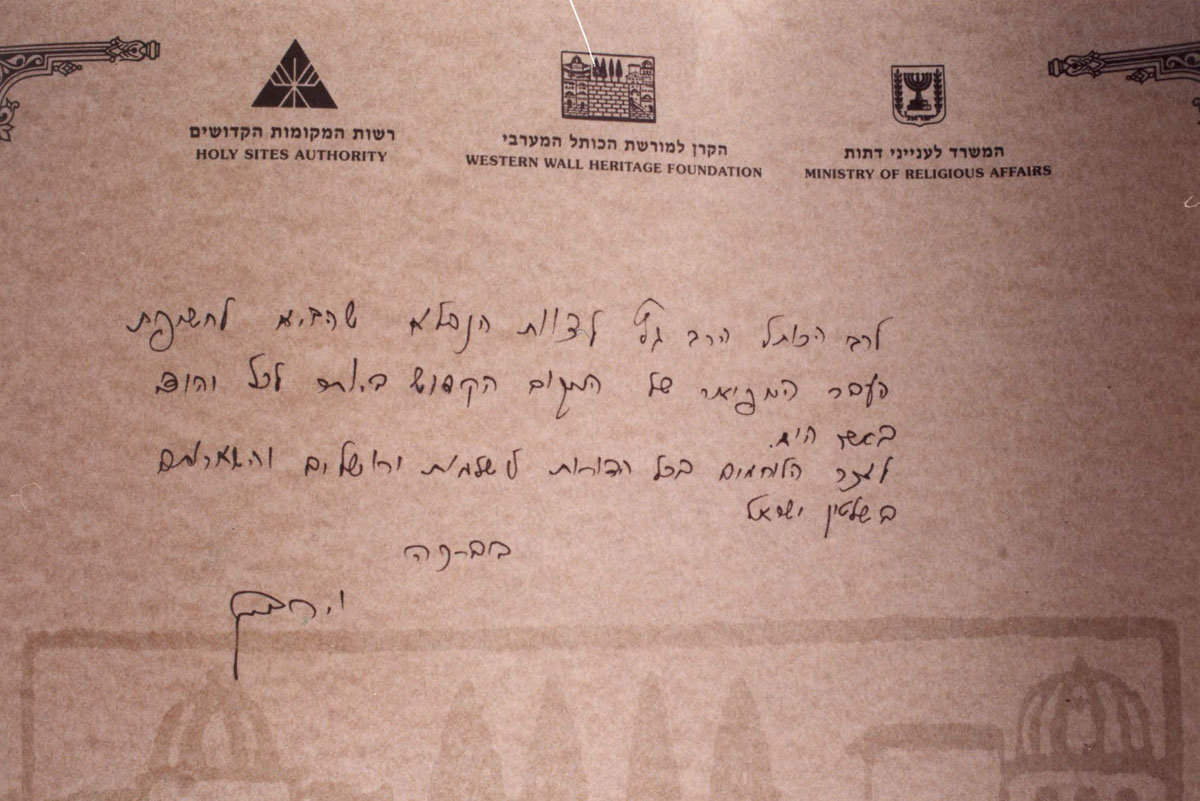 רשות המקומות הקדושים
HOLY SITES AUTHORITY
הקרן למורשת הכותל המערבי
WESTERN WALL HERITAGE FOUNDATION
המשרד לענייני דתות
MINISTRY OF RELIGIOUS AFFAIRS
לרב הכותל הרב גץ לצוות הנפלא שהביא לחשיפת
העבר המפואר של המקום הקדוש ביותר לכל יהודי
באשר הוא.
הלוחמים בכל הדורות לשלמות ירושלים
בשלטון ישראל
בברכה